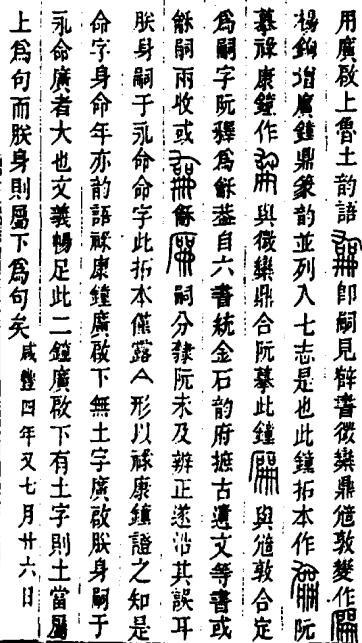 用廣啟上魯土韵語即嗣見辥書微欒鼎敦變作
楊鉤增廣鐘鼎篆韵並列入七志是也此鐘拓本作阮
摹祿康鐘作與微欒鼎合阮摹此鐘與敦合定
爲嗣字阮釋爲龢蓋自六書統金石韵府摭古遺文等書或
龢嗣兩收或龢嗣分隸阮未及辨正遂沿其誤耳
朕身嗣于永命命字此拓本僅露人形以祿康鐘證之知是
命字身命年亦韵語祿康鐘廣啟下無土字廣啟朕身嗣于
永命廣者大也文義暢足此二鐘廣啟下有土字則土當屬
上爲句而朕身則屬下爲句矣 咸豐四年又七月廿六日